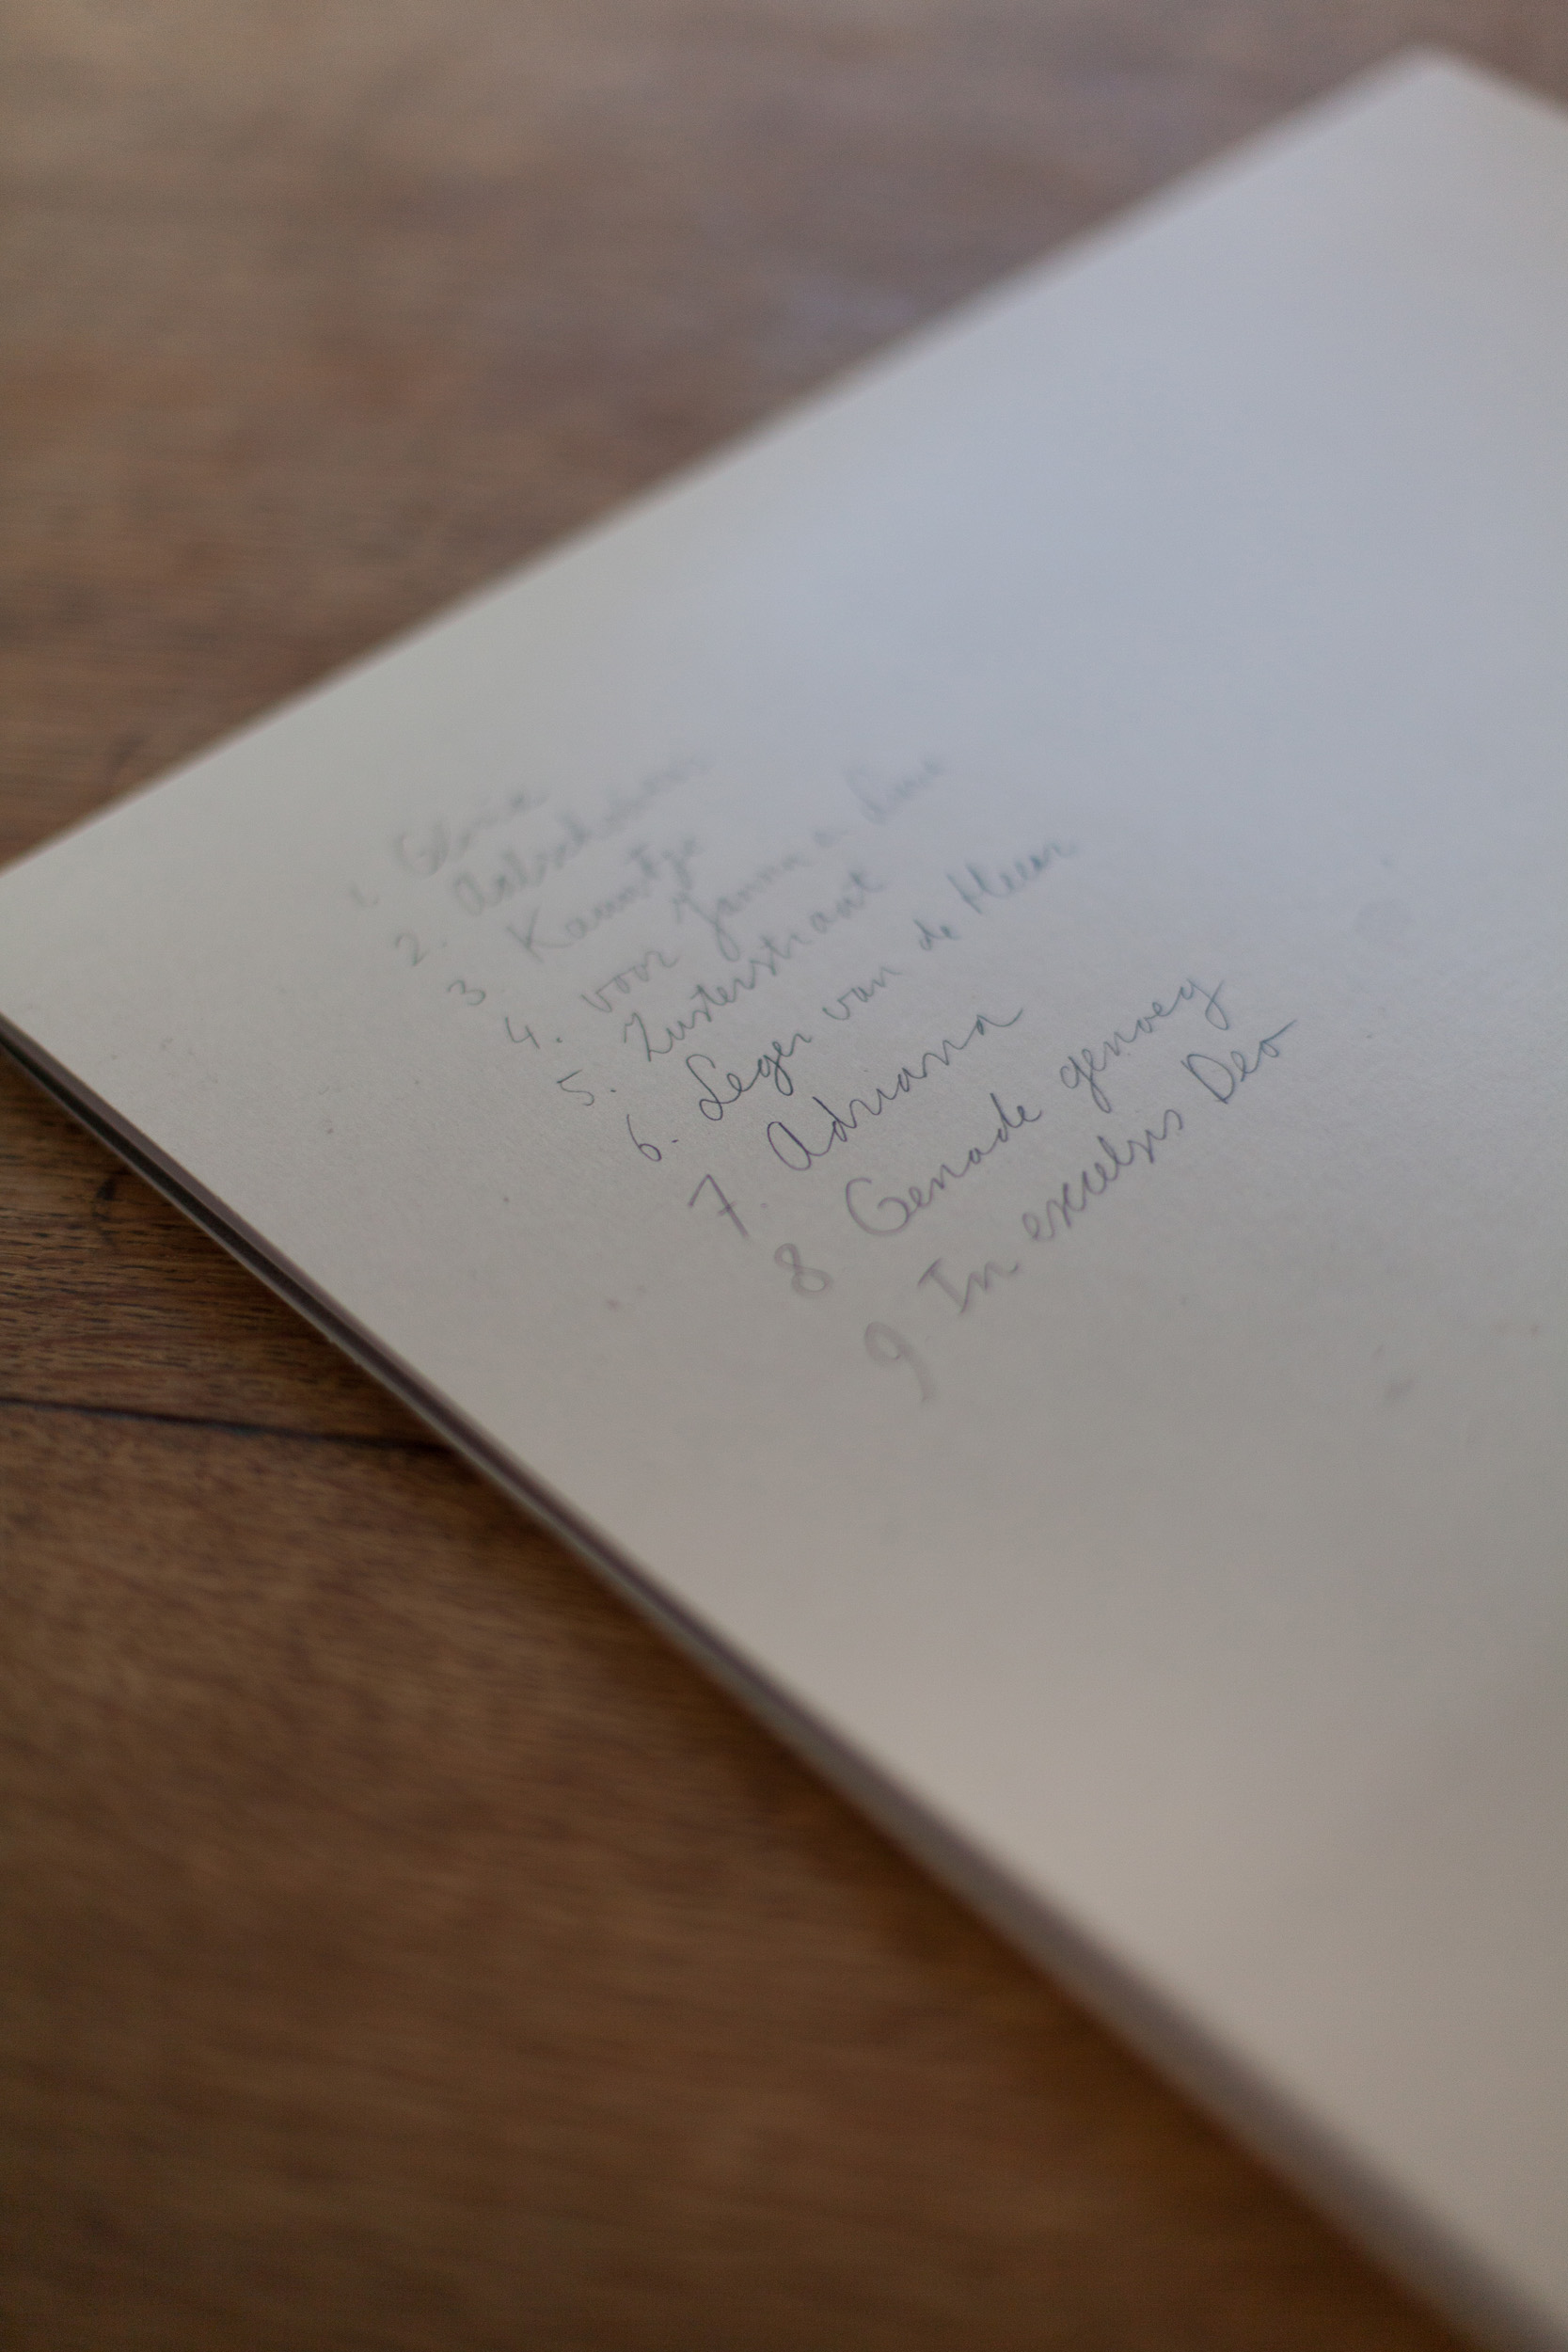 1. Gloria
2.
3 Kaarsje
4. voor Janna a
5. Zusterstraat
6. Leger van de Heer
7. Adriana
8 Genade genoeg
9 In excelsis Deo